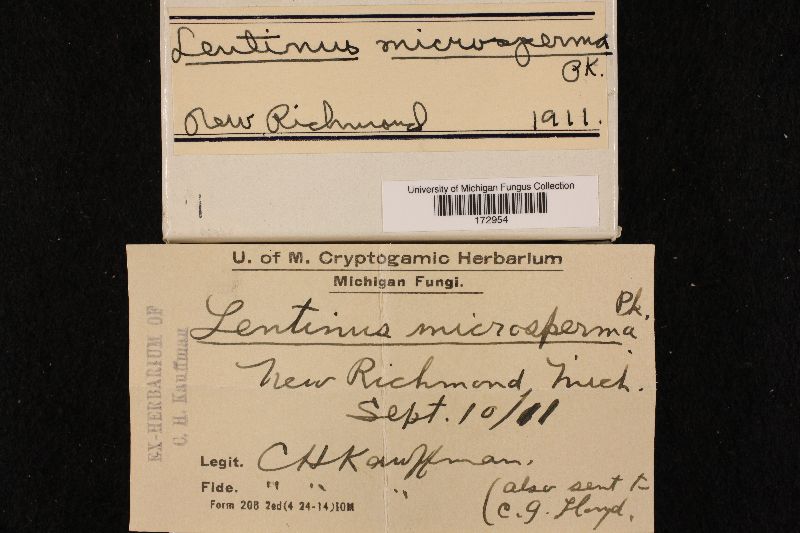 Lentinus microsperma
Pk.
New Richmond 1911.
University of Michigan Fungus Collection
172954
U. of M. Cryptogamic Herbarium
Michigan Fungi.
Pk.
Lentinus microsperma
New Richmond, Mich.
Sept. 10/11
Legit. CHKauffman.
Fide. " " "
(also sent to
C. G. Lloyd.
Form 208 2ed(4 24-14)10M
EX-HERBARIUM OF
C. H. Kauffman